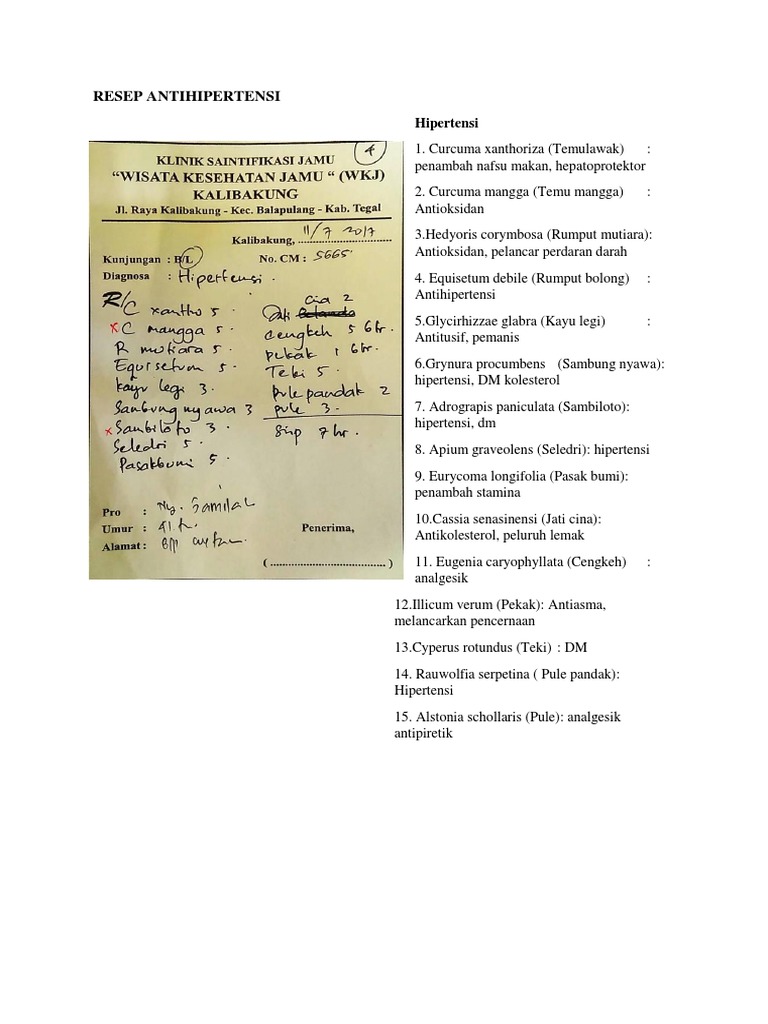 RESEP ANTIHIPERTENSI
4
KLINIK SAINTIFIKASI JAMU
“WISATA KESEHATAN JAMU “ (WKJ)
KALIBAKUNG
Jl. Raya Kalibakung - Kec. Balapulang - Kab. Tegal
Kalibakung, 11/7 2017
Kunjungan : B/L No. CM : 5665
Diagnosa : Hipertensi.
R/
C xantho 5.
C mangga 5.
R mutiara 5.
Equisetum 5.
kayu legi 3.
Sambung nyawa 3
Sambiloto 3.
Seledri 5.
Pasakbumi 5.
Jati Cia 2
cengkeh 5 6hr.
pekak 1 6hr.
Teki 5.
pule pandak 2
pule 3.
7 hr.
Pro : Ny.
Umur : 41
Alamat :
Penerima,
( ...................................... )
Hipertensi
1. Curcuma xanthoriza (Temulawak) :
penambah nafsu makan, hepatoprotektor
2. Curcuma mangga (Temu mangga) :
Antioksidan
3.Hedyoris corymbosa (Rumput mutiara):
Antioksidan, pelancar perdaran darah
4. Equisetum debile (Rumput bolong) :
Antihipertensi
5.Glycirhizzae glabra (Kayu legi) :
Antitusif, pemanis
6.Grynura procumbens (Sambung nyawa):
hipertensi, DM kolesterol
7. Adrograpis paniculata (Sambiloto):
hipertensi, dm
8. Apium graveolens (Seledri): hipertensi
9. Eurycoma longifolia (Pasak bumi):
penambah stamina
10.Cassia senasinensi (Jati cina):
Antikolesterol, peluruh lemak
11. Eugenia caryophyllata (Cengkeh) :
analgesik
12.Illicum verum (Pekak): Antiasma,
melancarkan pencernaan
13.Cyperus rotundus (Teki) : DM
14. Rauwolfia serpetina ( Pule pandak):
Hipertensi
15. Alstonia schollaris (Pule): analgesik
antipiretik